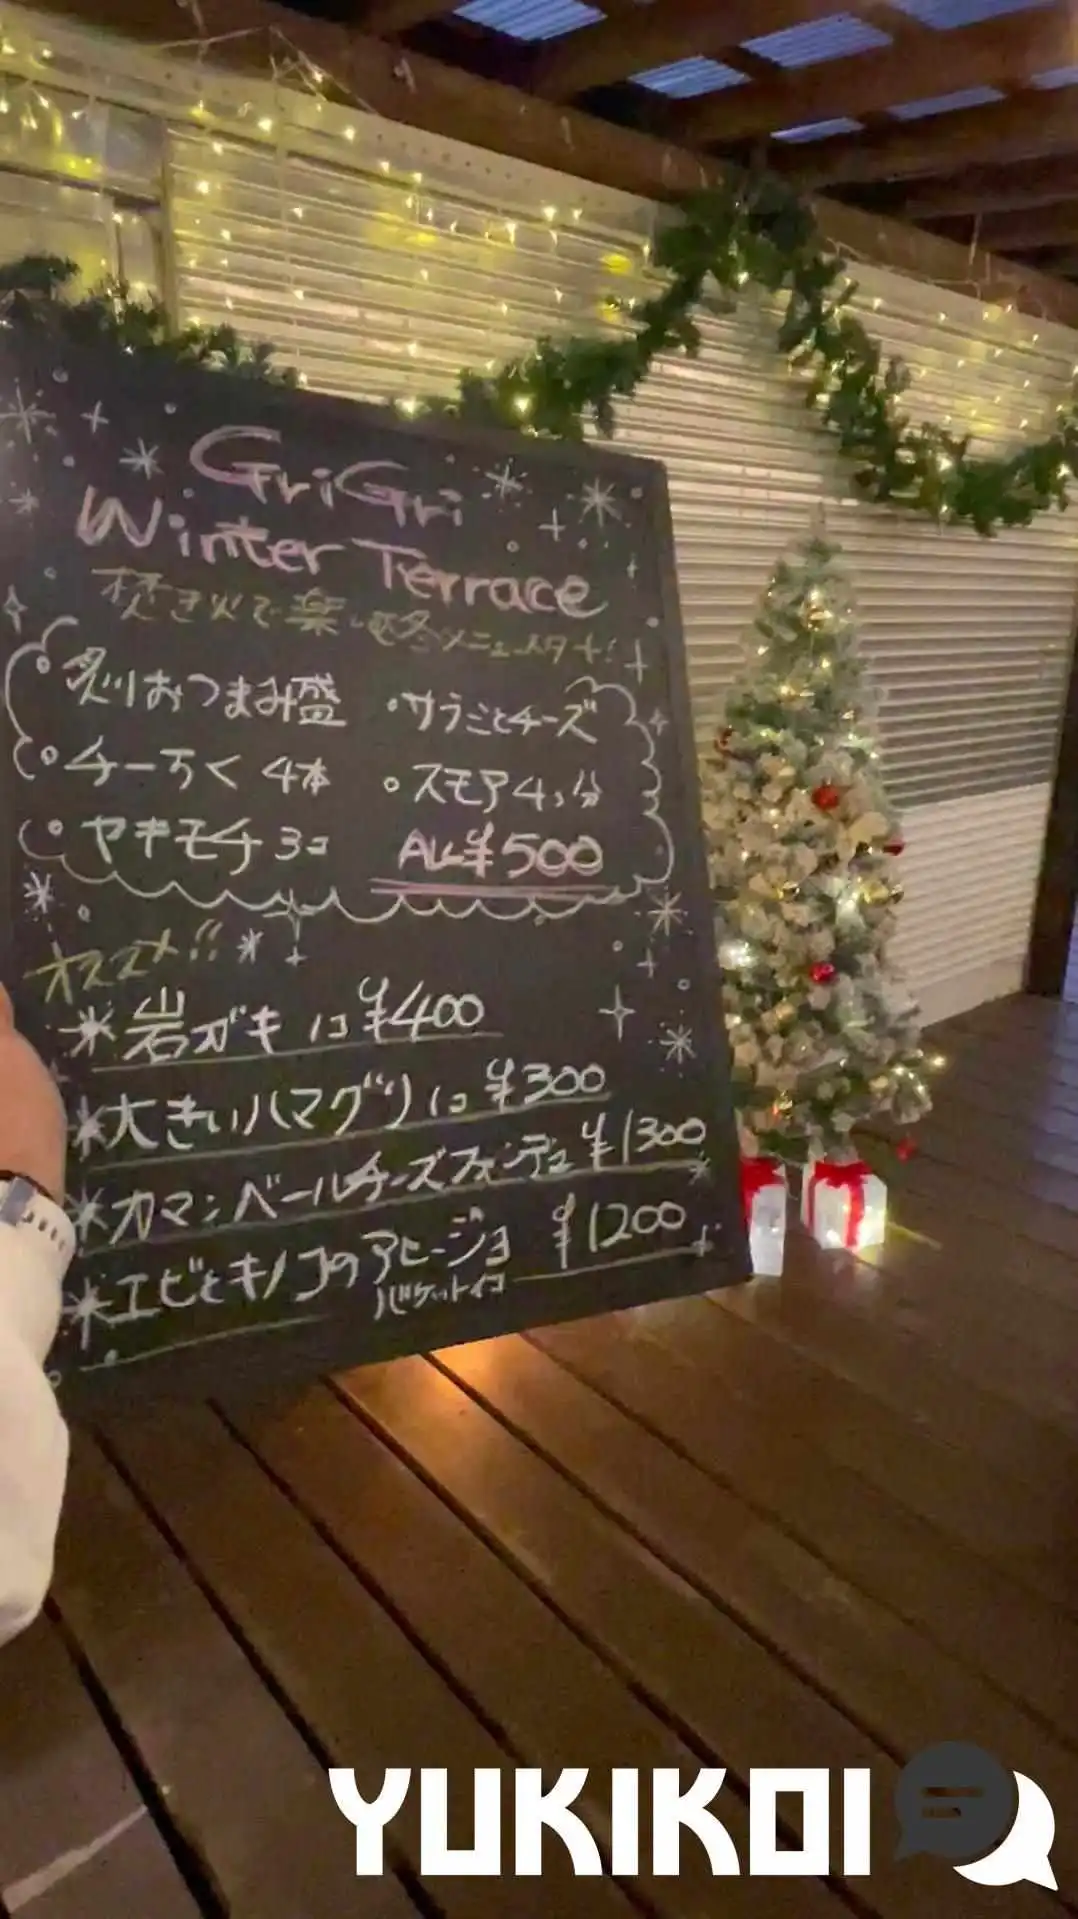 GriGri
Winter Terrace
焚き火で楽しむ冬メニュースタート!
炙りおつまみ盛
・サラミとチーズ
チーちく 4本
スモア4コ分
ヤキモチ 3コ
ALL¥500
オススメ!!
岩ガキ 1コ ¥400
大きいハマグリ 1コ ¥300
カマンベールチーズフォンデュ ¥1300
エビとキノコのアヒージョ ¥1200
バケット4コ
YUKIKOI